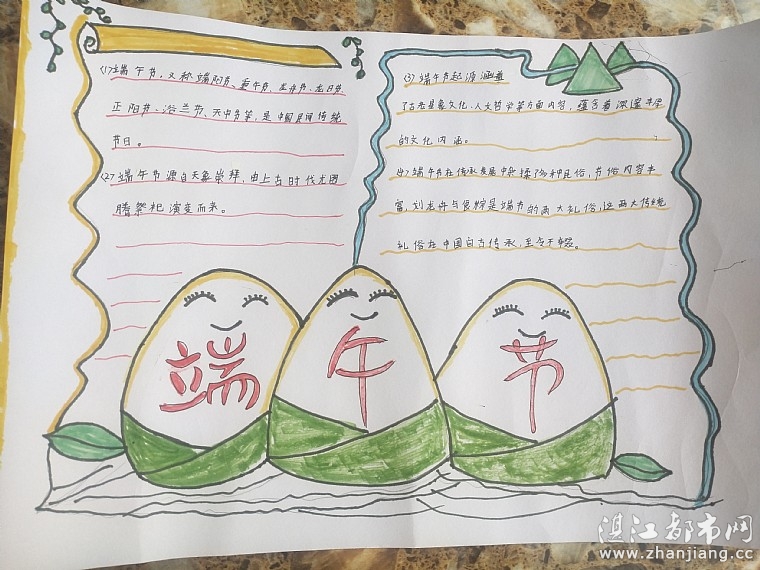 (1)端午节，又称端阳节、重午节、龙舟节、龙日节
正阳节、浴兰节、天中节等，是中国民间传统
节日。
(2)端午节源自天象崇拜，由上古时代龙图
腾祭祀演变而来。
(3)端午节起源涵盖
了古老星象文化、人文哲学等方面内容，蕴含着深邃丰厚
的文化内涵。
(4)端午节在传承发展中杂揉了多种民俗，节俗内容丰
富，划龙舟与食粽是端午的两大礼俗，这两大传统
礼俗在中国自古传承，至今不辍。
端午节
湛江都市网
www.zhanjiang.cc